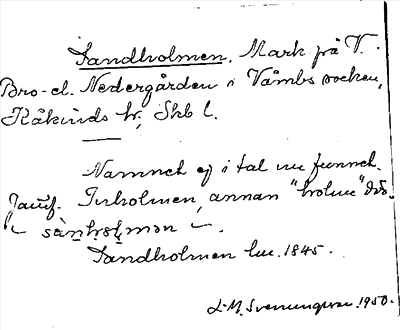 Sandholmen. Mark på V.
Bro- el. Nedergården i Våmbs socken,
Kåkinds hd, Skb l.
Namnet ej i tal nu funnet.
Jämf. Inholmen, annan "holme" där.
sàn̥hòl̥mən
Sandholmen lm. 1845.
L.M. Svenungsson. 1950.